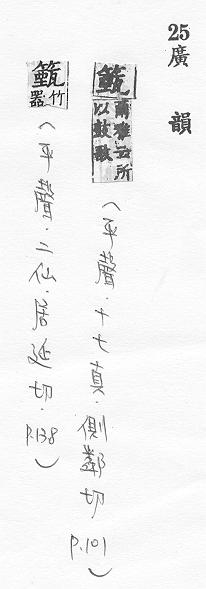 25 廣韻
籈 爾雅云所以鼓敔 （平聲．十七真．側鄰切 P.101）
籈 竹器 （平聲．二仙．居延切．P.138）